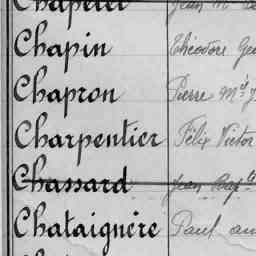 Chapelet Jean
Chapin Théodore
Chapron Pierre
Charpentier Félix Victor
Chassard Jean Bapte
Chataignère Paul